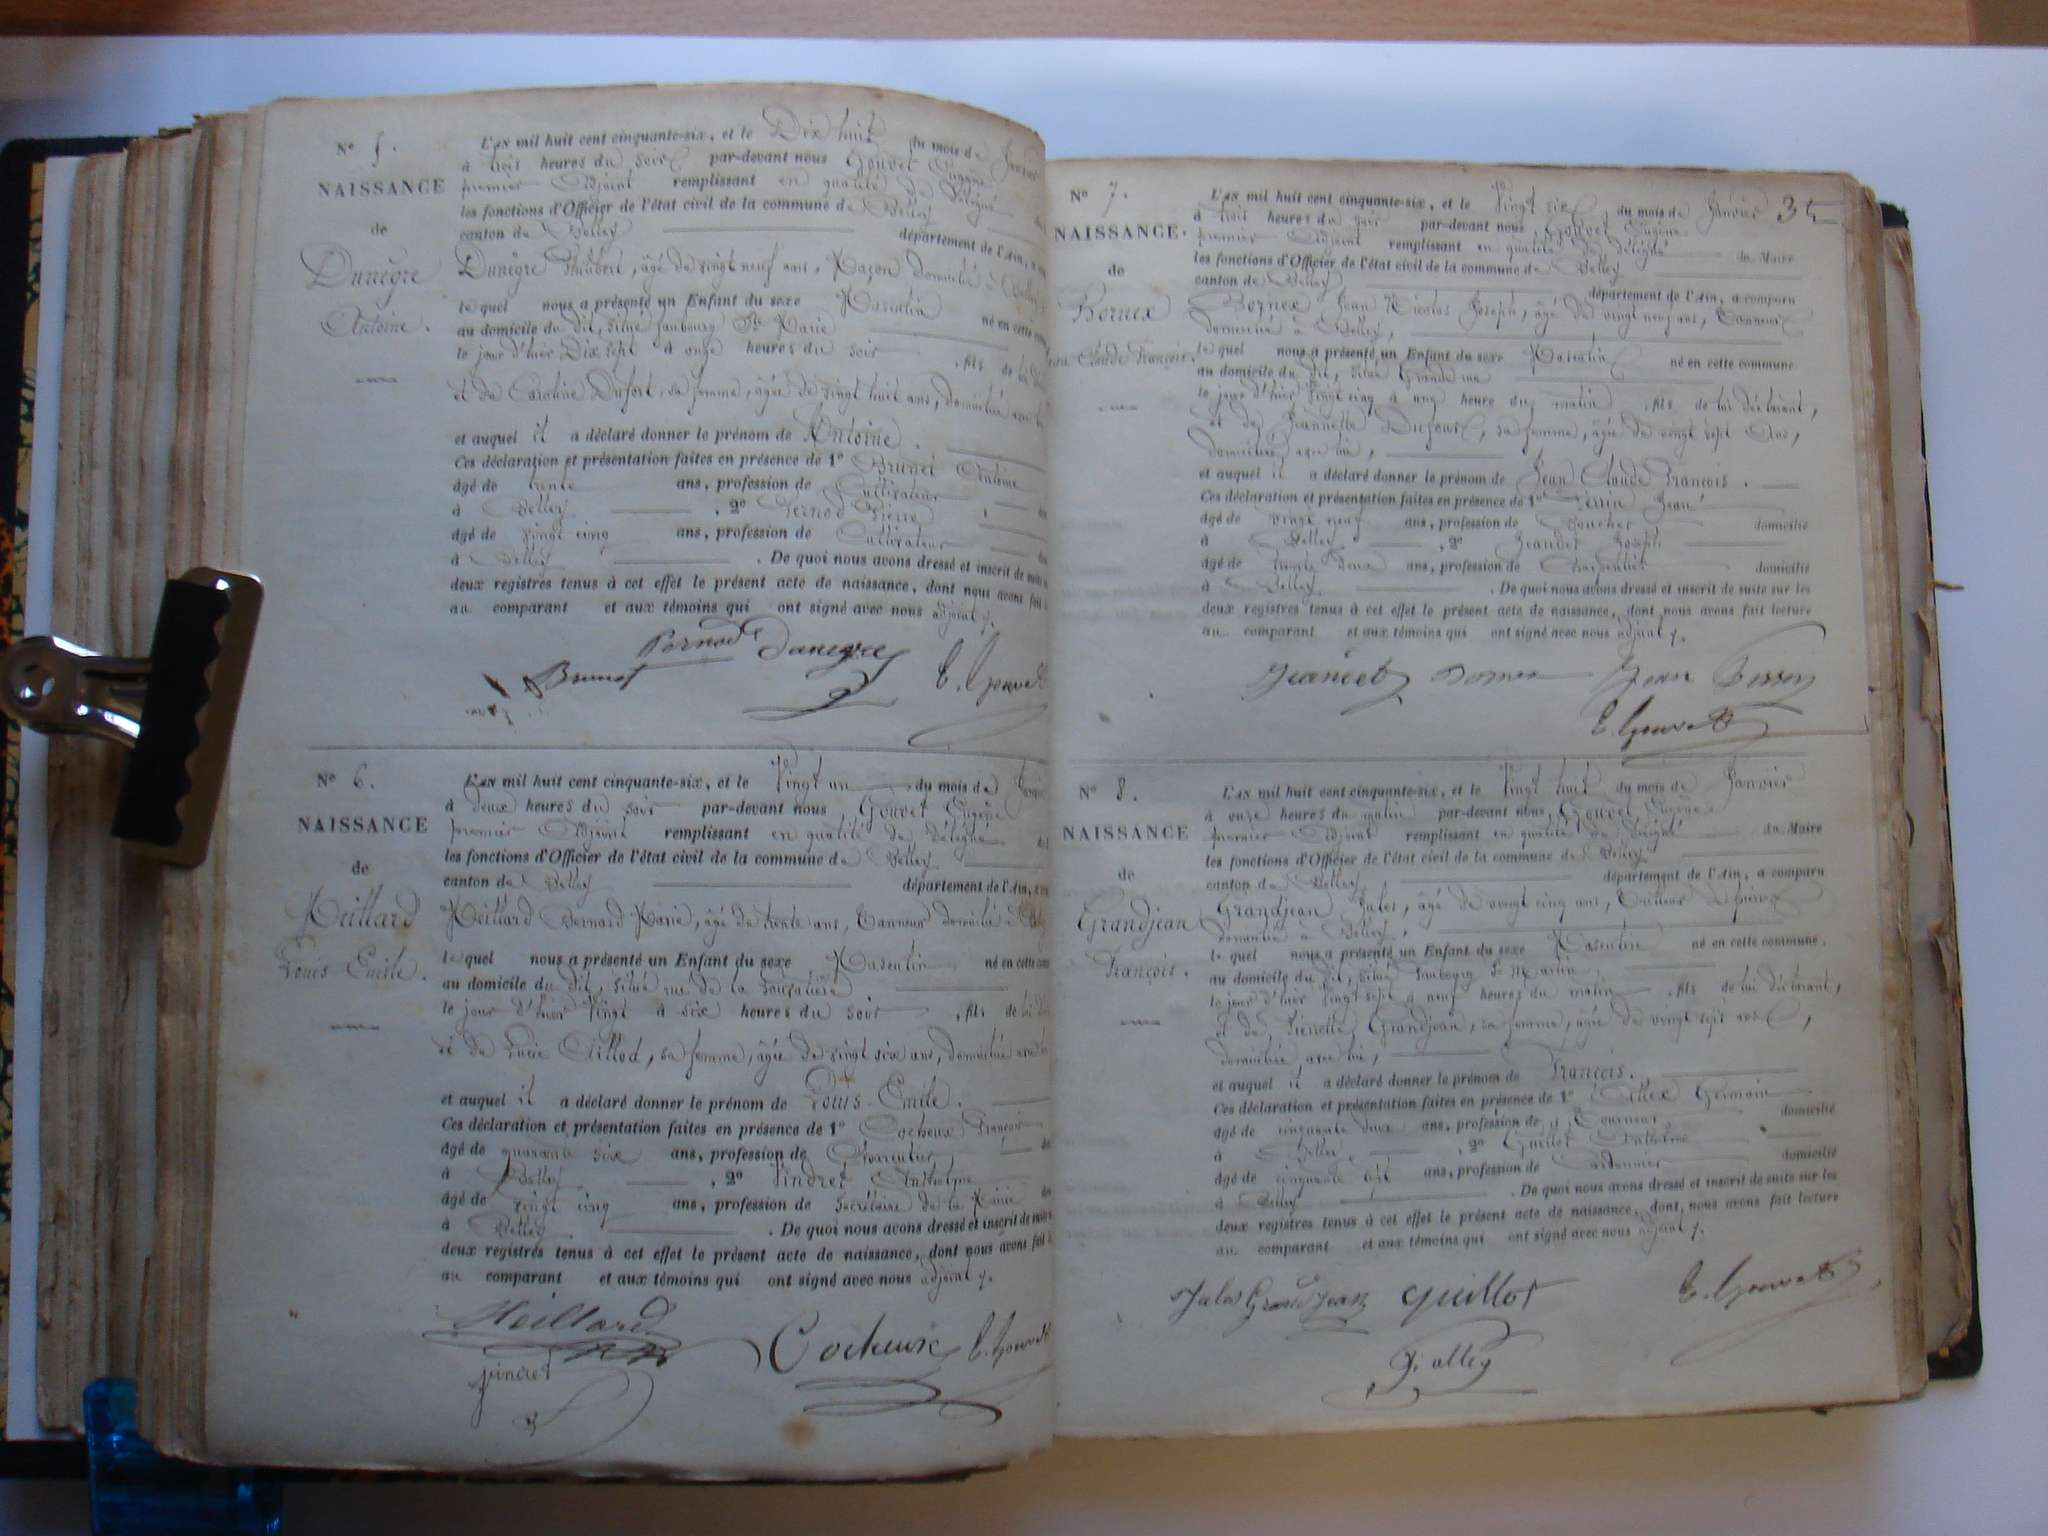 N° 5.
NAISSANCE
de
Dunègre
Antoine.
L'AN mil huit cent cinquante-six, et le Dix huit du mois de
à trois heures du soir par-devant nous Gouvet Eugène
premier Adjoint remplissant en qualité de Délégué
les fonctions d'Officier de l'état civil de la commune de Belley
canton de Belley département de l'Ain, a
Dunègre âgé de vingt neuf ans, Maçon domicilié à Belley
lequel nous a présenté un Enfant du sexe Masculin
au domicile du dit, situé faubourg Ste Marie né en cette
le jour d'hier Dix sept à onze heures du soir, fils de lui
et de Caroline Dufort, sa femme, âgée de vingt huit ans, domiciliée avec
et auquel il a déclaré donner le prénom de Antoine.
Ces déclaration et présentation faites en présence de 1° Brunet Antoine
âgé de trente ans, profession de Cultivateur
à Belley, 2° Pernod Pierre
âgé de vingt cinq ans, profession de Cultivateur
à Belley. De quoi nous avons dressé et inscrit de suite
deux registres tenus à cet effet le présent acte de naissance, dont nous avons fait
au comparant et aux témoins qui ont signé avec nous adjoint
Pernod Dunegre
Brunet E. Gouvet
N° 6.
NAISSANCE
de
Meillard
Louis Emile.
L'AN mil huit cent cinquante-six, et le Vingt un du mois de
à deux heures du soir par-devant nous Gouvet Eugène
premier Adjoint remplissant en qualité de délégué
les fonctions d'Officier de l'état civil de la commune de Belley
canton de Belley département de l'Ain, a
Meillard Bernard Marie, âgé de trente ans, Tanneur domicilié à
lequel nous a présenté un Enfant du sexe Masculin né en cette
au domicile du dit, situé rue de la
le jour d'hier Vingt à six heures du soir, fils de lui
et de Lucie sa femme, âgée de vingt six ans, domiciliée avec
et auquel il a déclaré donner le prénom de Louis Emile.
Ces déclaration et présentation faites en présence de 1° Cocheux François
âgé de quarante six ans, profession de
à Belley, 2° Pindret Anthelme
âgé de vingt cinq ans, profession de Secrétaire de la Mairie
à Belley. De quoi nous avons dressé et inscrit de suite
deux registres tenus à cet effet le présent acte de naissance, dont nous avons fait
au comparant et aux témoins qui ont signé avec nous adjoint
Meillard
Cocheux E. Gouvet
pindret
N° 7.
35
NAISSANCE.
de
Bornex
Claude François.
L'AN mil huit cent cinquante-six, et le Vingt six, du mois de Janvier
à trois heures du soir par-devant nous, Gouvet Eugène
premier Adjoint remplissant en qualité de délégué du Maire
les fonctions d'Officier de l'état civil de la commune de Belley
canton de Belley département de l'Ain, a comparu
Bornex Jean Nicolas Joseph, âgé de vingt neuf ans, Tanneur
domicilié à Belley,
lequel nous a présenté un Enfant du sexe Masculin né en cette commune
au domicile du dit, situé Grande rue
le jour d'hier Vingt cinq à une heure du matin, fils de lui déclarant,
et de Jeannette Dufour, sa femme, âgée de vingt sept ans,
domiciliée avec lui,
et auquel il a déclaré donner le prénom de Jean Claude François.
Ces déclaration et présentation faites en présence de 1° Perrin Jean
âgé de vingt neuf ans, profession de Boucher domicilié
à Belley, 2° Jeandet Joseph
âgé de trente deux ans, profession de Charpentier domicilié
à Belley. De quoi nous avons dressé et inscrit de suite sur les
deux registres tenus à cet effet le présent acte de naissance, dont nous avons fait lecture
au comparant et aux témoins qui ont signé avec nous adjoint
Jeandet Bornex Jean Perrin
E. Gouvet
N° 8.
NAISSANCE
de
Grandjean
François.
L'AN mil huit cent cinquante-six, et le Vingt huit du mois de Janvier
à onze heures du matin par-devant nous, Gouvet Eugène
premier Adjoint remplissant en qualité de Délégué du Maire
les fonctions d'Officier de l'état civil de la commune de Belley
canton de Belley département de l'Ain, a comparu
Grandjean Jules, âgé de vingt cinq ans, Tailleur de pierre
domicilié à Belley,
lequel nous a présenté un Enfant du sexe Masculin né en cette commune,
au domicile du dit, situé faubourg St Martin
le jour d'hier Vingt sept à neuf heures du matin, fils de lui déclarant,
et de Pierrette Grandjean, sa femme, âgée de vingt sept ans,
domiciliée avec lui,
et auquel il a déclaré donner le prénom de François.
Ces déclaration et présentation faites en présence de 1° Germain
âgé de cinquante deux ans, profession de Tourneur domicilié
à Belley, 2° Guillot Anthelme
âgé de cinquante six ans, profession de Cordonnier domicilié
à Belley. De quoi nous avons dressé et inscrit de suite sur les
deux registres tenus à cet effet le présent acte de naissance, dont nous avons fait lecture
au comparant et aux témoins qui ont signé avec nous adjoint
Jules Grandjean Guillot E. Gouvet